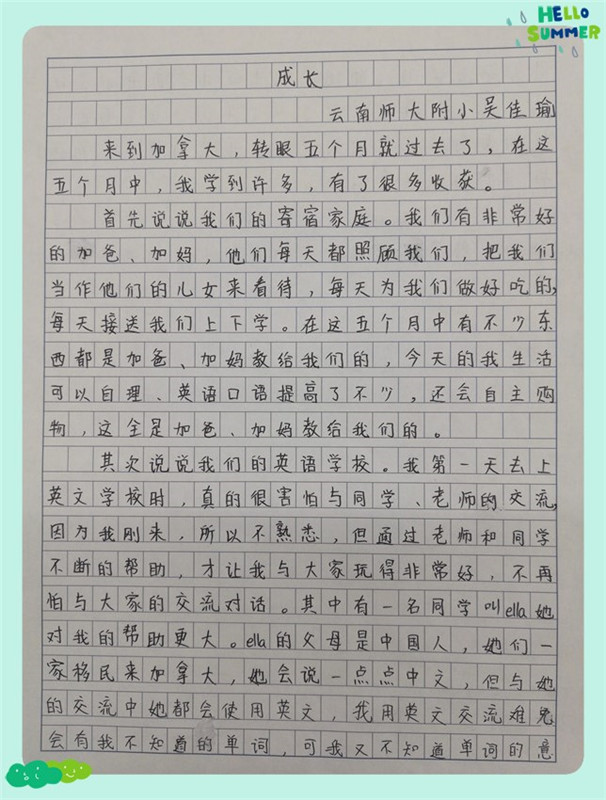 HELLO
SUMMER
成长
云南师大附小吴佳瑜
来到加拿大，转眼五个月就过去了，在这
五个月中，我学到许多，有了很多收获。
首先说说我们的寄宿家庭。我们有非常好
的加爸、加妈，他们每天都照顾我们，把我们
当作他们的儿女来看待，每天为我们做好吃的，
每天接送我们上下学。在这五个月中有不少东
西都是加爸、加妈教给我们的，今天的我生活
可以自理、英语口语提高了不少，还会自主购
物，这全是加爸、加妈教给我们的。
其次说说我们的英语学校。我第一天去上
英文学校时，真的很害怕与同学、老师的交流，
因为我刚来，所以不熟悉，但通过老师和同学
不断的帮助，才让我与大家玩得非常好，不再
怕与大家的交流对话。其中有一名同学叫ella她
对我的帮助更大。ella的父母是中国人，她们一
家移民来加拿大，她会说一点点中文，但与她
的交流中她都会使用英文，我用英文交流难免
会有我不知道的单词，可我又不知道单词的意